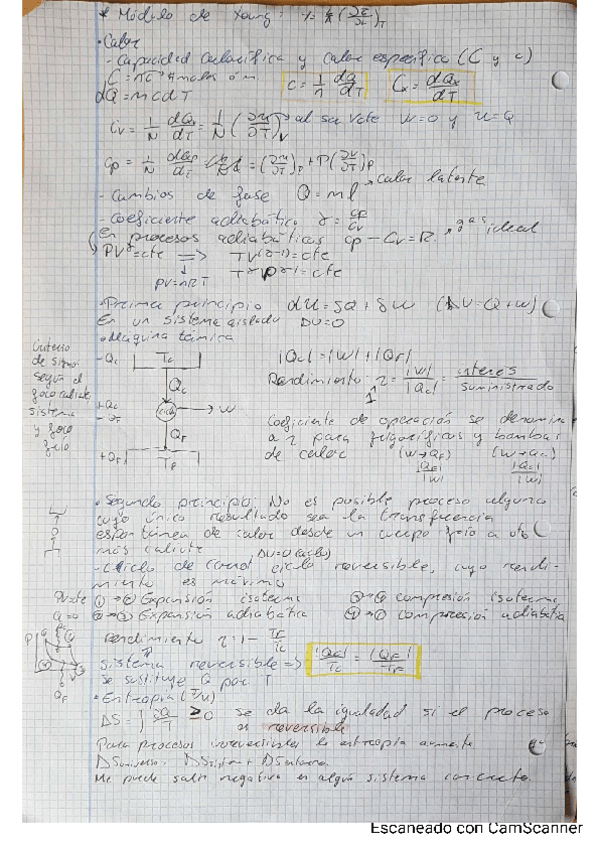 * Módulo de Young:
• Calor
- Capacidad calorífica y calor específico (C y c)
c = 1/n dQ/dT   Cx = dQx/dT
dQ = mcdT
Cv = 1/N dQv/dT = 1/N (∂u/∂T)v → al ser V cte W=0 y U=Q
Cp = 1/N dQp/dT = (∂u/∂T)p + P(∂V/∂T)p
- Cambios de fase Q = ml → calor latente
- coeficiente adiabático γ = cp/cv
en procesos adiabáticos cp - cv = R → gas ideal
PV^γ = cte ⇒ TV^(γ-1) = cte
PV=nRT
• Primer principio dU = δQ + δW (ΔU = Q+W)
En un sistema aislado ΔU=0
• Máquina térmica
criterio de signo según el foco caliente, sistema y foco frío
-Qc Tc
Qc
+Qc
W
QF
+QF TF
|Qc| = |W| + |QF|
Rendimiento: η = |W|/|Qc| = interés/suministrado
Coeficiente de operación se denomina
a η para frigoríficos y bombas
de calor (W→QF) (W→Qc)
|QF|/|W| |Qc|/|W|
• Segundo principio: No es posible proceso alguno
cuyo único resultado sea la transferencia
espontánea de calor desde un cuerpo frío a otro
más caliente
ΔU=0 (ciclo)
- Ciclo de Carnot ciclo reversible, cuyo rendi-
miento es máximo
①→② Expansión isoterma ③→④ compresión isoterma
Q=0 ②→③ Expansión adiabática ④→① compresión adiabática
rendimiento η = 1 - TF/Tc
sistema reversible ⇒ |Qc|/Tc = |QF|/TF
se sustituye Q por T
• Entropía (J/K)
ΔS = ∫ δQ/T ≥ 0 se da la igualdad si el proceso
es reversible
Para procesos irreversibles la entropía aumenta
ΔSuniverso = ΔSsistema + ΔSentorno
Me puede salir negativa en algún sistema concreto.
Escaneado con CamScanner